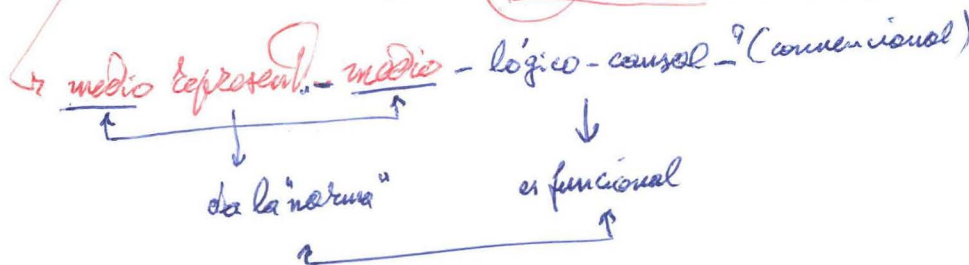 medio represent. - medio - lógico-causal - ? (convencional)
da la "norma" es funcional